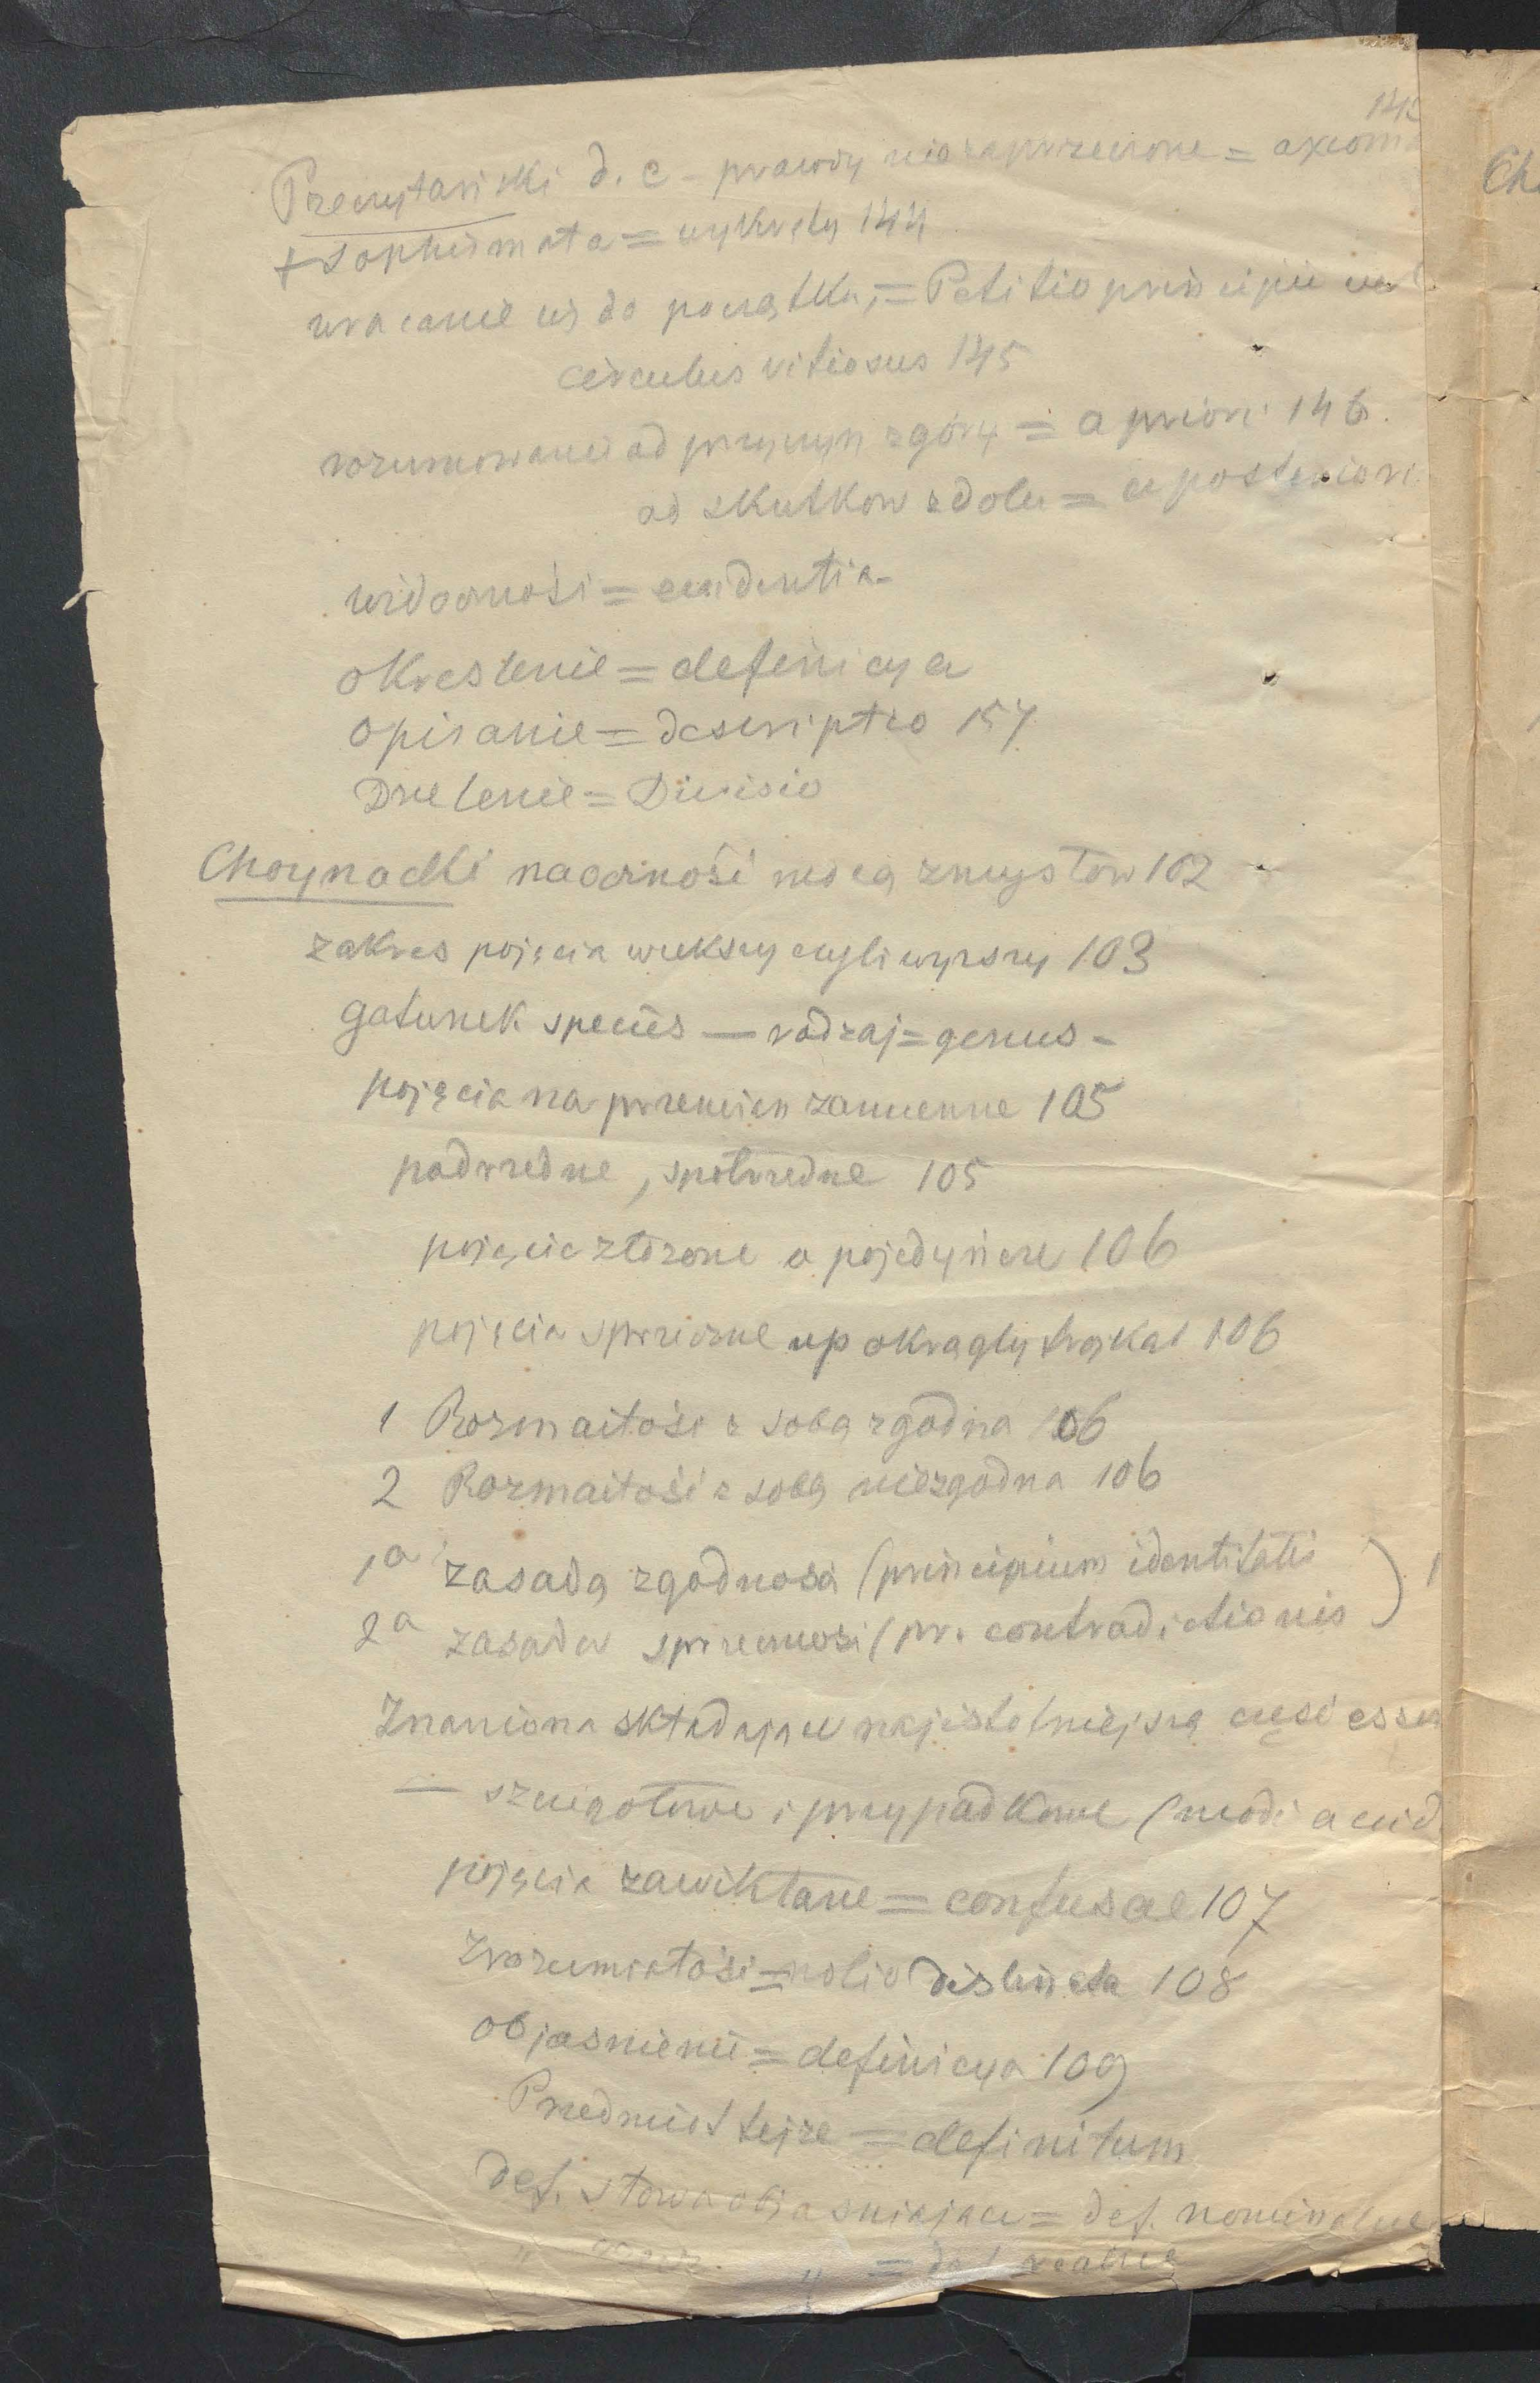 142
Przeczytański d. c – prawdy niezaprzeczone = axioma
+ sophismata = wykręty 144
wracanie się do początku, = Petitio principii vel
circulus vitiosus 145
rozumowanie od przyczyn z góry = a priori 146.
od skutkow z dołu = a posteriori
widoczność = evidentia –
określenie = definicya
opisanie = descriptio 157
Dzielenie = Divisio
Choynacki naoczność zmysłow 102
zakres pojęcia wiekszy czyli wyższy 103
gatunek species — rodzaj = genus –
pojęcia na przemian zamienne 105
podrzedne, społrzedne 105
pojęcie złożone a pojedyńcze 106
pojęcia sprzeczne np okragly trojkat 106
1 Rozmaitość z sobą zgodna 106
2 Rozmaitość z sobą niezgodna 106
1a zasada zgodności (principium identitatis ) 1
2a zasada sprzeczności (pr. contradictionis
Znamiona składające najistotniejszą część essen
— szczegołowe i przypadkowe (modi accid.
pojęcia zawikłane = confusae 107
zrozumiałość = notio distincta 108
objasnienie = definicya 109
Przedmiot tejże = definitum
def. słowa objasniajace = def. nominalne
" rzecz. " = def realne
Ch